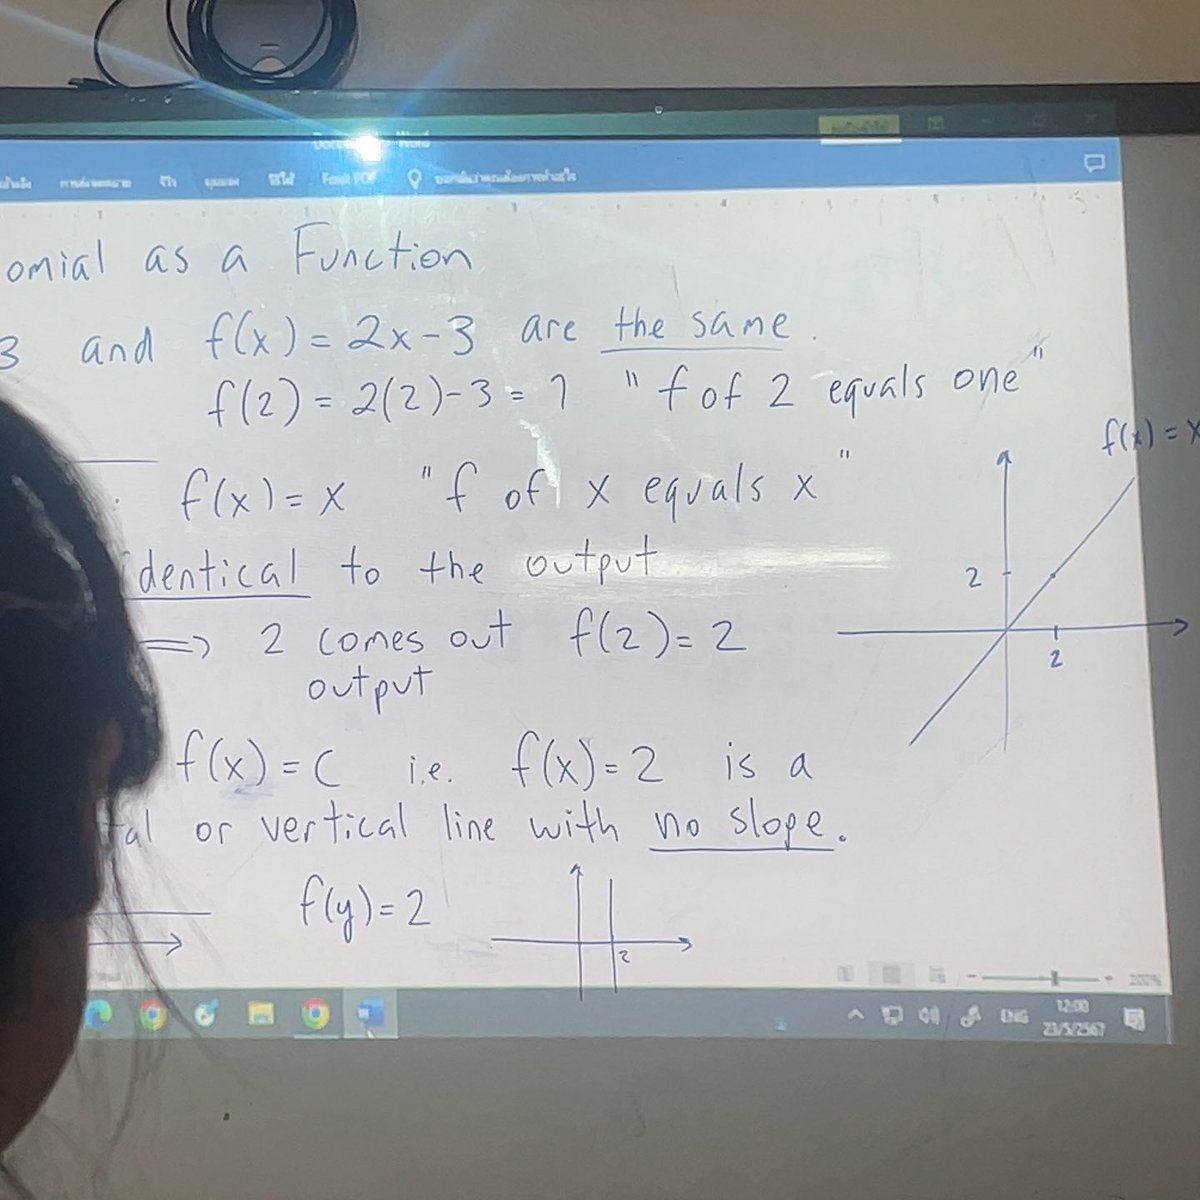 omial as a Function
3 and f(x) = 2x-3 are the same.
f(2) = 2(2)-3 = 1 "f of 2 equals one"
f(x) = x
f(x) = x "f of x equals x"
dentical to the output
2
=> 2 comes out f(2) = 2
2
output
f(x) = C i.e. f(x) = 2 is a
tal or vertical line with no slope.
f(y) = 2
2
ENG
12:00
23/5/2567